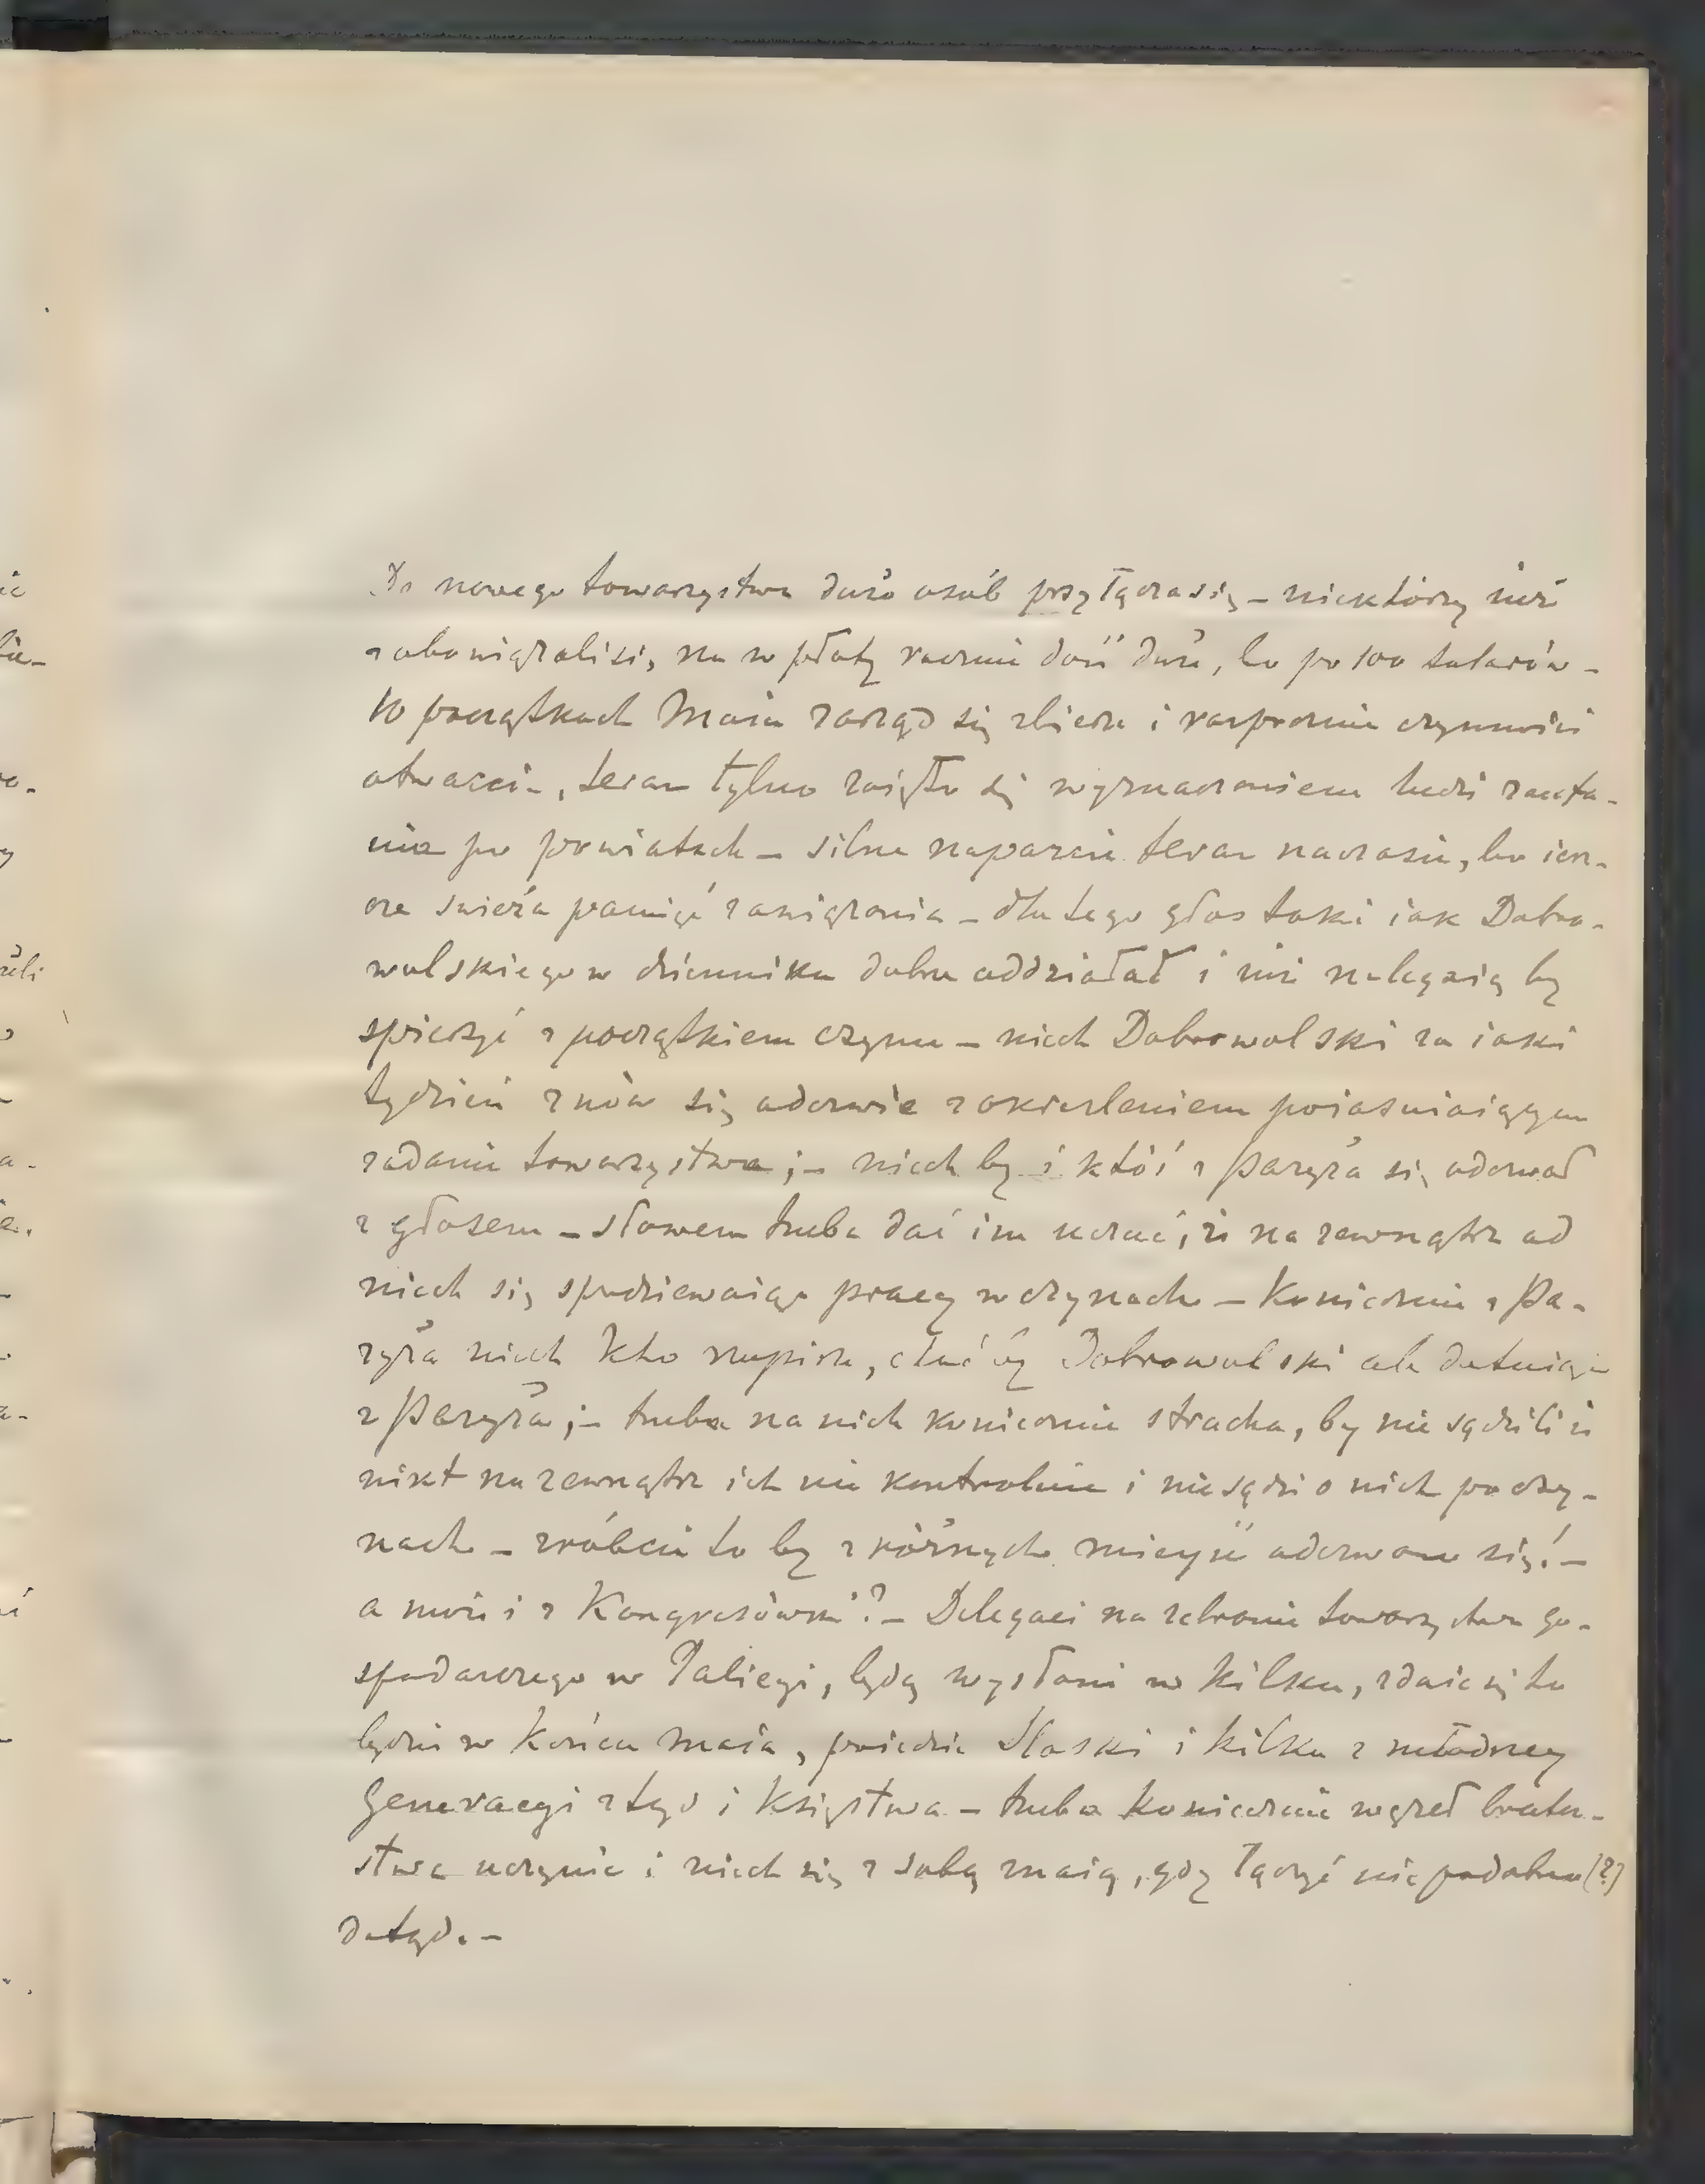 Do nowego towarzystwa dużo osób przyłącza się – niektórzy już
zobowiązali się na wpłaty roczne dość duże, bo po 100 talarów –
W początkach Maia zarząd się zbierze i rozpocznie czynności
otwarcie, teraz tylko zaięto się wyznaczeniem ludzi zaufa-
nia po powiatach – silne naparcie teraz na czasie, bo iesz-
cze świeża pamięć zawiązania – dla tego głos taki iak Dobro-
wolskiego w dzienniku dobrze oddziałał i już nalegaią by
spieszyć z początkiem czynu – niech Dobrowolski za iaki
tydzień znów się odezwie z określeniem poiaśniaiącym
zadanie towarzystwa ;– niech by i któś z Paryża się odezwał
z głosem – słowem trzeba dać im uczuć, iż na zewnątrz od
nich się spodziewaią pracy w czynach – Koniecznie z Pa-
ryża niech kto napisze, choć by Dobrowolski ale datuiąc
z Paryża ;– trzeba na nich koniecznie stracha, by nie sądzili iż
nikt na zewnątrz ich nie kontroluie i nie sądzi o nich po czy-
nach – zróbcie to by z różnych mieysc odezwano się! –
a może i z Kongresówki? – Delegaci na zebranie towarzystwa go-
spodarczego w Galicyi, będą wysłani w kilku, zdaie się to
będzie w końcu maia, poiedzie Słaski i kilku z młodszey
generacyi z tego i Księstwa – trzeba koniecznie węzeł brater-
stwa uczynić i niech się z sobą znaią, gdy łączyć nie podobna (?)
dotąd. –